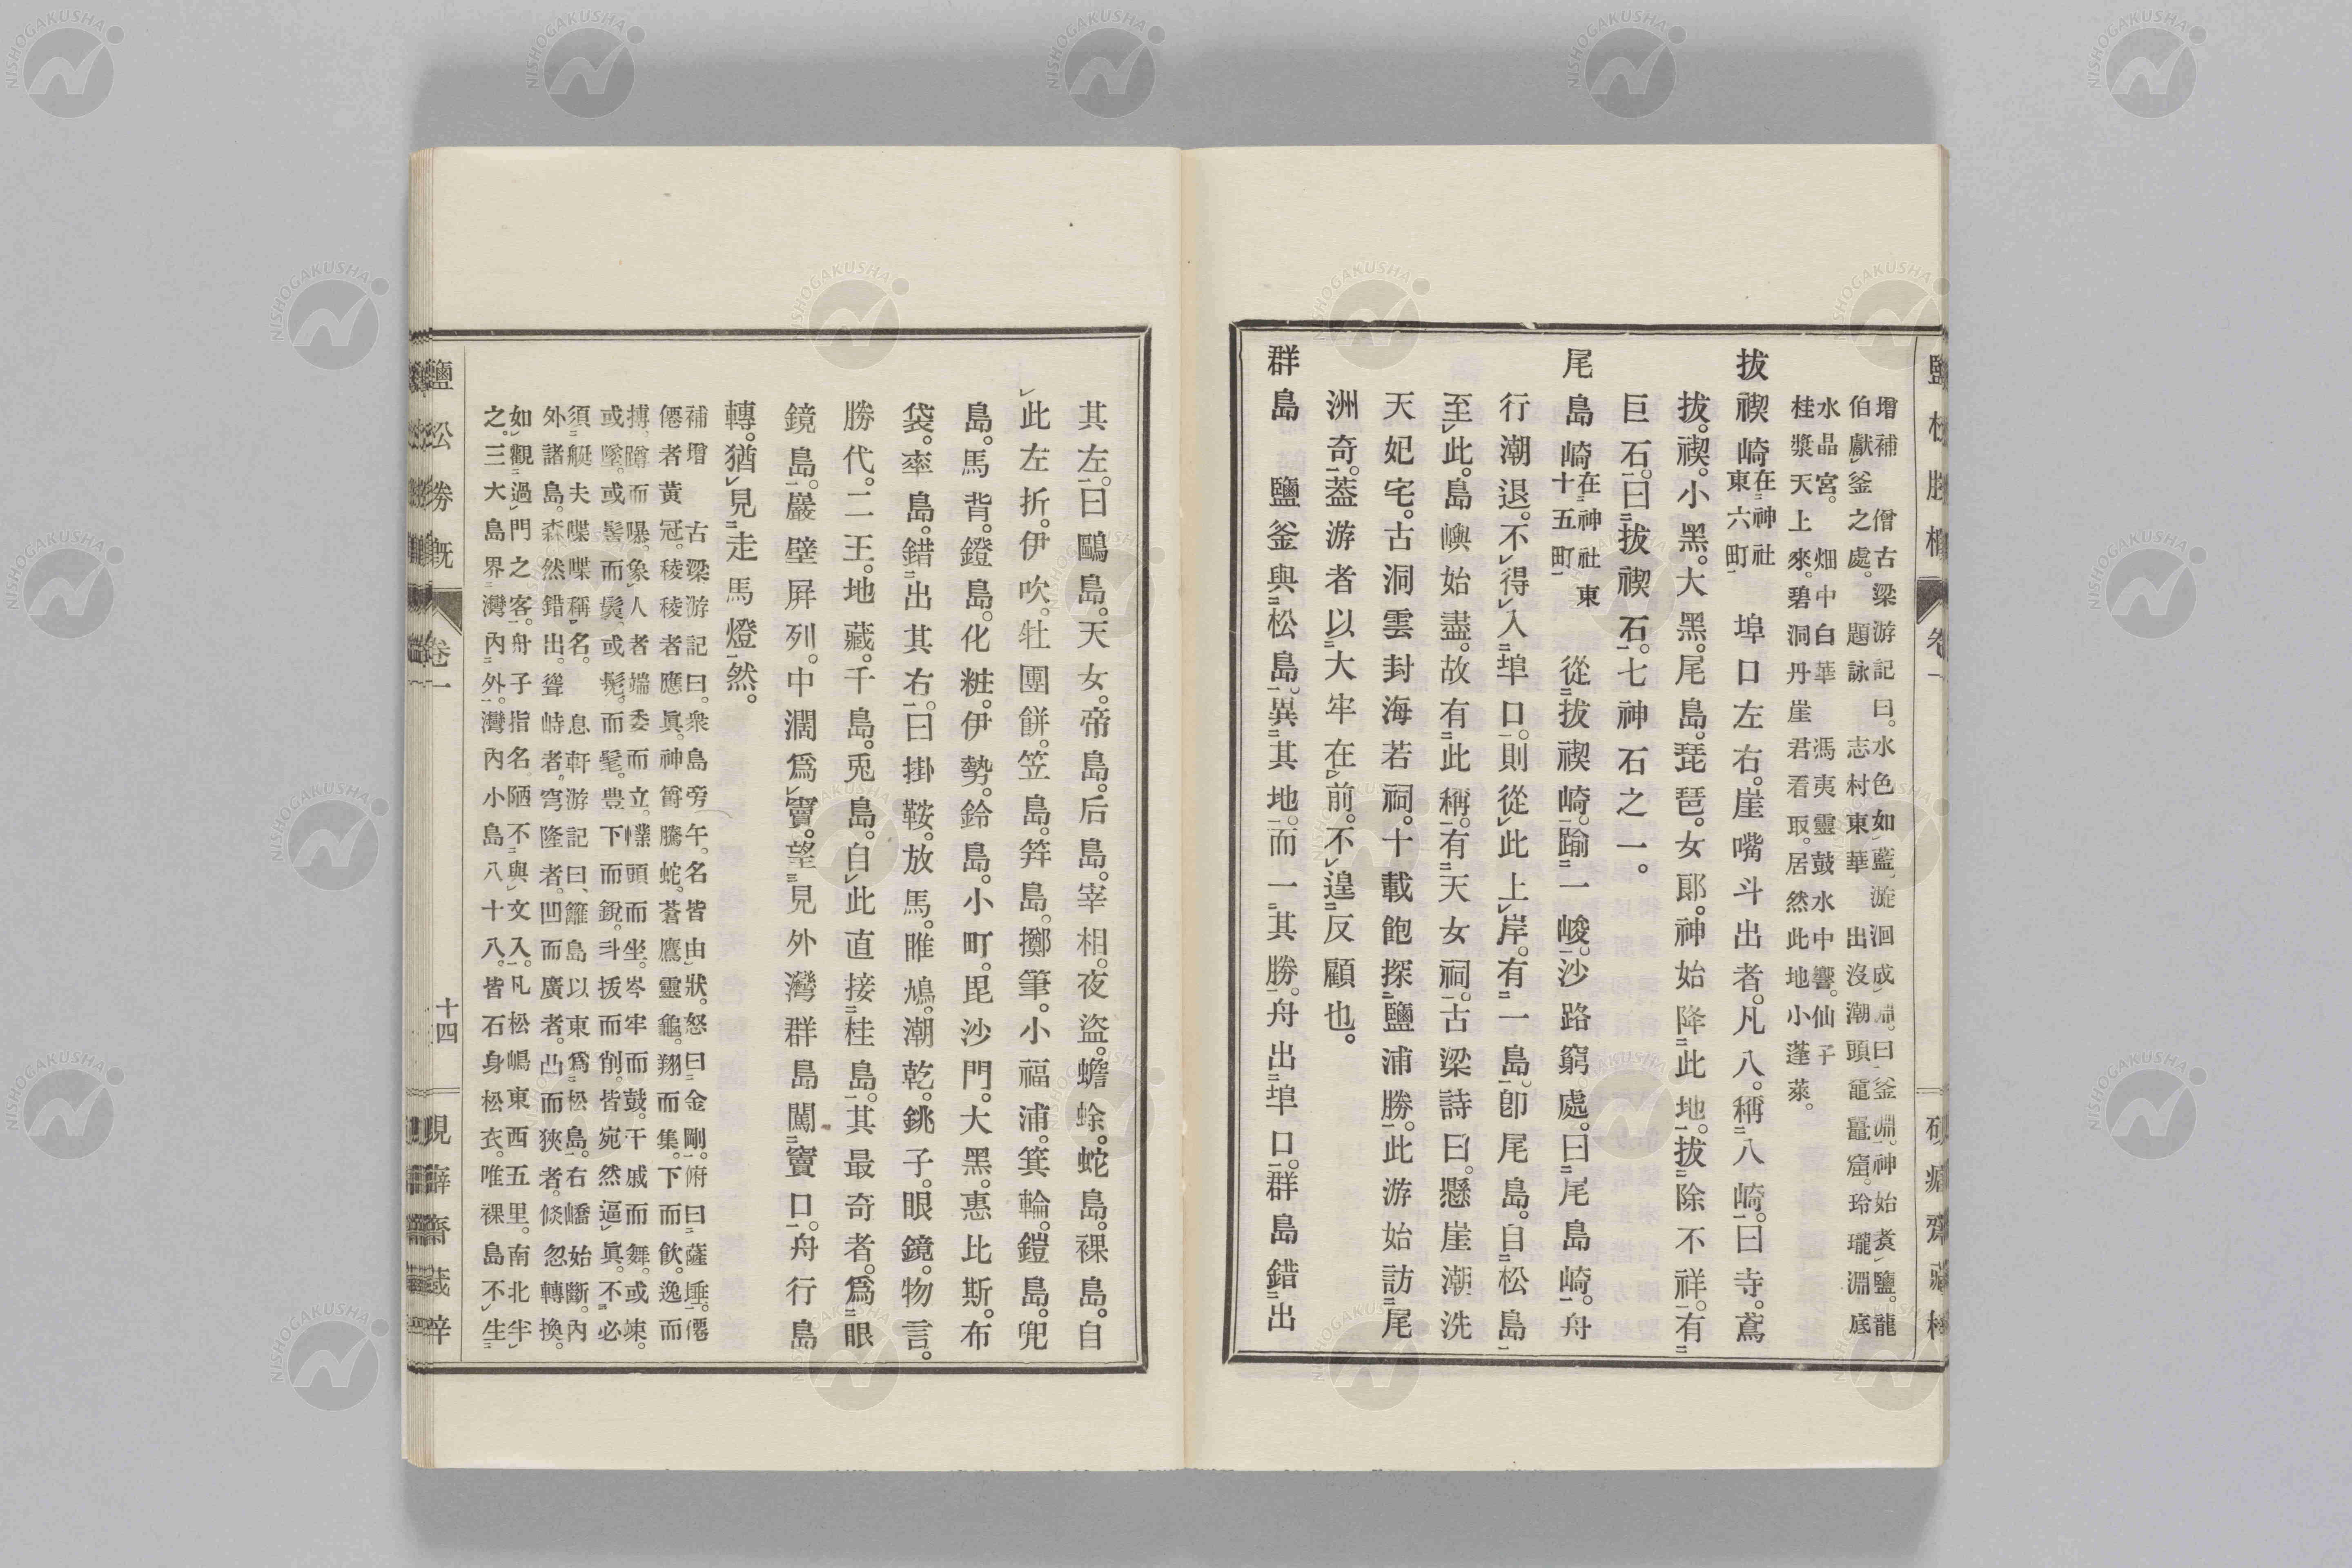 增補　僧古梁游記曰。水色如藍。漩洄成淵。曰釜淵。神始煮鹽。龍
伯獻釜之處。　題詠　志村東華　出沒潮頭黿鼉窟。玲瓏淵底
水晶宮。　畑中白華　馮夷靈鼓水中響。仙子
桂漿天上來。碧洞丹崖君看取。居然此地小蓬萊。
拔禊崎在神社東六町　埠口左右。崖嘴斗出者。凡八。稱八崎。曰寺。鳶
拔。禊。小黑。大黑。尾島。琵琶。女郎。神始降此地。拔除不祥。有
巨石。曰拔禊石。七神石之一。
尾島崎在神社東十五町　從拔禊崎。踰一峻。沙路窮處。曰尾島崎。舟
行潮退。不得入埠口。則從此上岸。有一島。卽尾島。自松島
至此。島嶼始盡。故有此稱。有天女祠。古梁詩曰。懸崖潮洗
天妃宅。古洞雲封海若祠。十載飽探鹽浦勝。此游始訪尾
洲奇。蓋游者以大牢在前。不遑反顧也。
群島　鹽釜與松島。異其地。而一其勝。舟出埠口。群島錯出
其左。曰鷗島。天女。帝島。后島。宰相。夜盜。蟾蜍。蛇島。裸島。自
此左折。伊吹。牡團餅。笠島。筓島。擲筆。小福浦。箕輪。鎧島。兜
島。馬背。鐙島。化粧。伊勢。鈴島。小町。毘沙門。大黑。惠比斯。布
袋。率島。錯出其右。曰掛鞍。放馬。雎鳩。潮乾。銚子。眼鏡。物言。
勝代。二王。地藏。千島。兎島。自此直接桂島。其最奇者。爲眼
鏡島。巖壁屏列。中濶爲竇。望見外灣群島闖竇口。舟行島
轉。猶見走馬燈然。
補增　古梁游記曰。衆島旁午。名皆由狀。怒曰金剛。俯曰薩埵。僊
僊者黃冠。稜稜者應眞。神鬐騰蛇。蒼鷹靈龜。翔而集。下而飮。逸而
搏。蹲而曝。象人者端委而立。幞頭而坐。岑牢而鼓。干戚而舞。或竦。
或墜。或髻而鬟。或髡。而髦。豊下而銳。斗拔而削。皆宛然逼眞。不必
須艇夫喋喋稱名。　息軒游記曰、籬島以東爲松島。右嶠始斷。內
外諸島。森然錯出。聳峙者。穹隆者。凹而廣者。凸而狹者。倐忽轉換。
如觀過門之客。舟子指名。陋不與文入。凡松嶋東西五里。南北半
之。三大島界灣內外。灣內小島八十八。皆石身松衣。唯裸島不生
鹽松勝概　卷一　十四